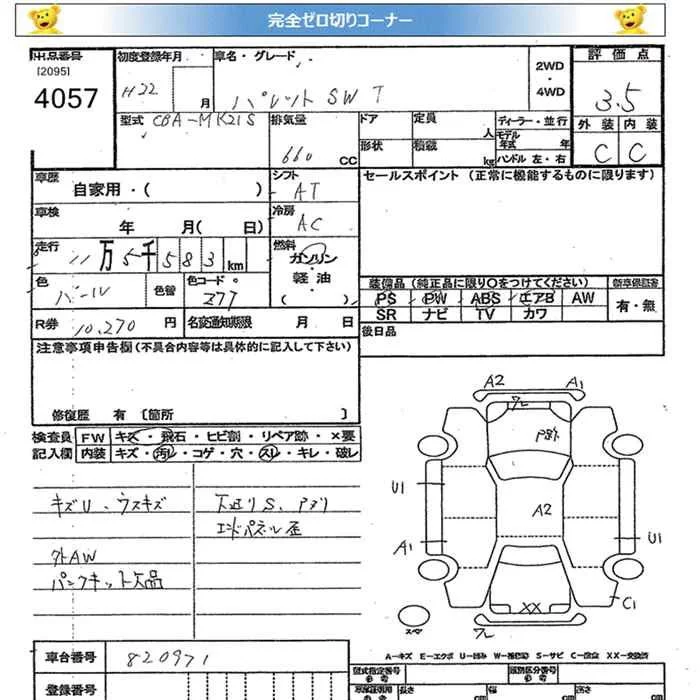 完全ゼロ切りコーナー
出品番号
[2095]
4057
初度登録年月
H22 月
車名・グレード
パレットSW T
2WD
・
4WD
評価点
3.5
外装 内装
C C
型式 CBA-MK21S
排気量
660 CC
ドア
定員
人
形状
積載
kg
ディーラー・並行
モデル年式 年
ハンドル 左・右
車歴
自家用・( )
シフト
AT
セールスポイント (正常に機能するものに限ります)
車検
年 月( 日)
冷房
AC
走行
11万5千583km
燃料
ガソリン
・
軽油
( )
色
パール
色替
色コード
Z77
装備品 (純正品に限り○をつけてください)
PS PW ABS エアB AW
SR ナビ TV カワ
新車保証書
有・無
R券 10,270 円
名変通知期限 月 日
後日品
注意事項申告欄(不具合内容等は具体的に記入して下さい)
修復歴 有 [箇所 ]
検査員記入欄
FW キズ・飛石・ヒビ割・リペア跡・×要
内装 キズ・汚レ・コゲ・穴・スレ・キレ・破レ
キズU・ウスキズ
下廻りS、Pサリ
エンドパネル歪
外AW
パンクキット欠品
A2
A1
フレ
U1
A2
A1
U1
C1
XX
スペヤ
フレ
A-キズ E-エクボ U-凹み W-補修跡 S-サビ C-腐食 XX-交換済
車台番号
820971
登録番号
型式指定番号
参考
類別区分番号
参考
長さ
cm
幅
cm
高さ
cm